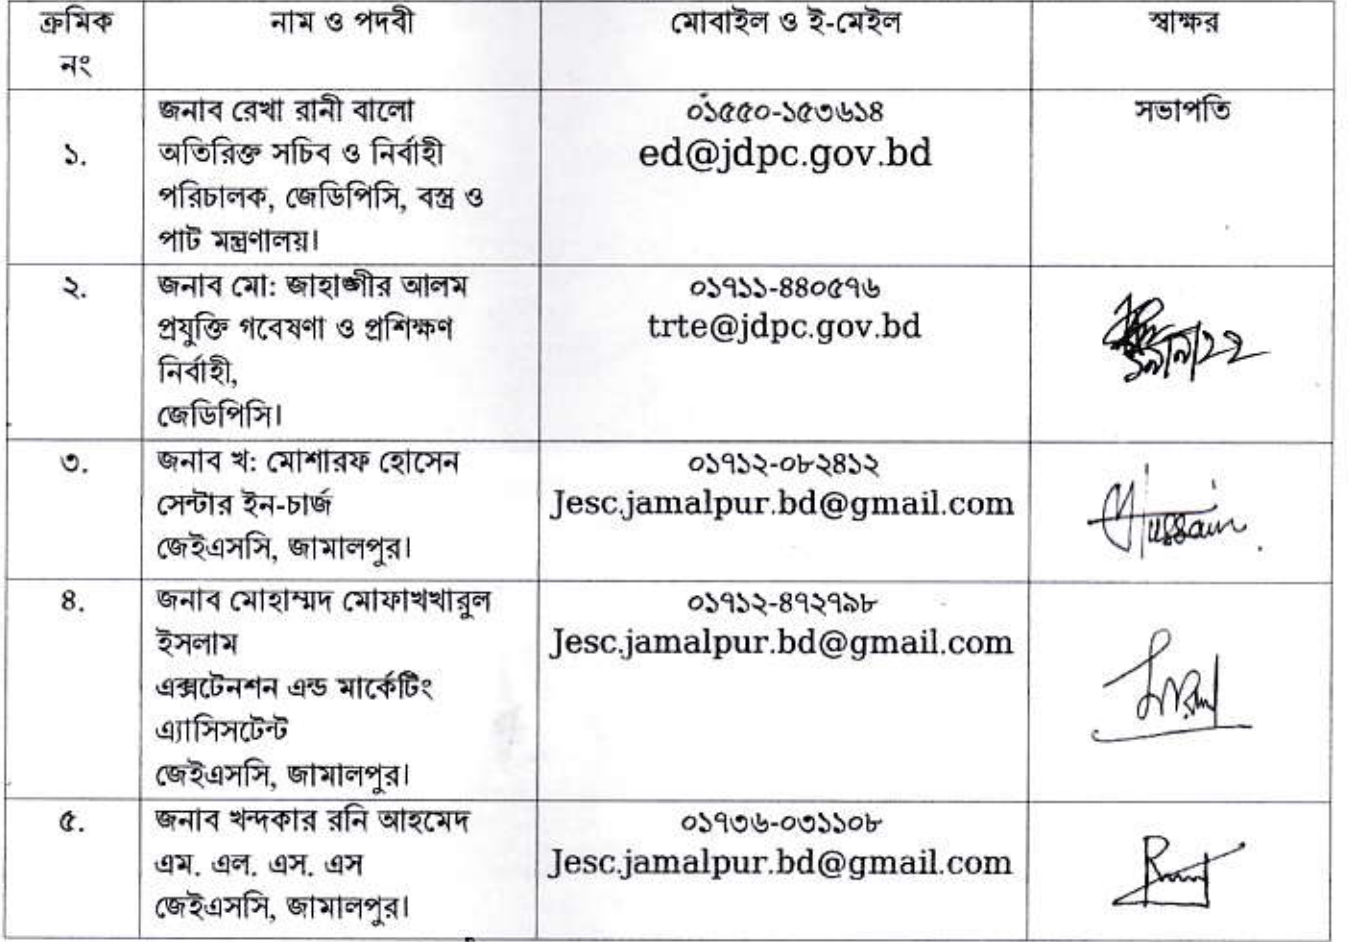 ক্রমিক নং	নাম ও পদবী	মোবাইল ও ই-মেইল	স্বাক্ষর
১.
জনাব রেখা রানী বালো
অতিরিক্ত সচিব ও নির্বাহী
পরিচালক, জেডিপিসি, বস্ত্র ও
পাট মন্ত্রণালয়।
০১৫৫০-১৫৩৬১৪
ed@jdpc.gov.bd
সভাপতি
২.
জনাব মো: জাহাঙ্গীর আলম
প্রযুক্তি গবেষণা ও প্রশিক্ষণ
নির্বাহী,
জেডিপিসি।
০১৭১১-৪৪০৫৭৬
trte@jdpc.gov.bd
৩.
জনাব খ: মোশারফ হোসেন
সেন্টার ইন-চার্জ
জেইএসসি, জামালপুর।
০১৭১২-০৮২৪১২
Jesc.jamalpur.bd@gmail.com
Hussain
৪.
জনাব মোহাম্মদ মোফাখখারুল
ইসলাম
এক্সটেনশন এন্ড মার্কেটিং
এ্যাসিসটেন্ট
জেইএসসি, জামালপুর।
০১৭১২-৪৭২৭৯৮
Jesc.jamalpur.bd@gmail.com
৫.
জনাব খন্দকার রনি আহমেদ
এম. এল. এস. এস
জেইএসসি, জামালপুর।
০১৭৩৬-০৩১১০৮
Jesc.jamalpur.bd@gmail.com